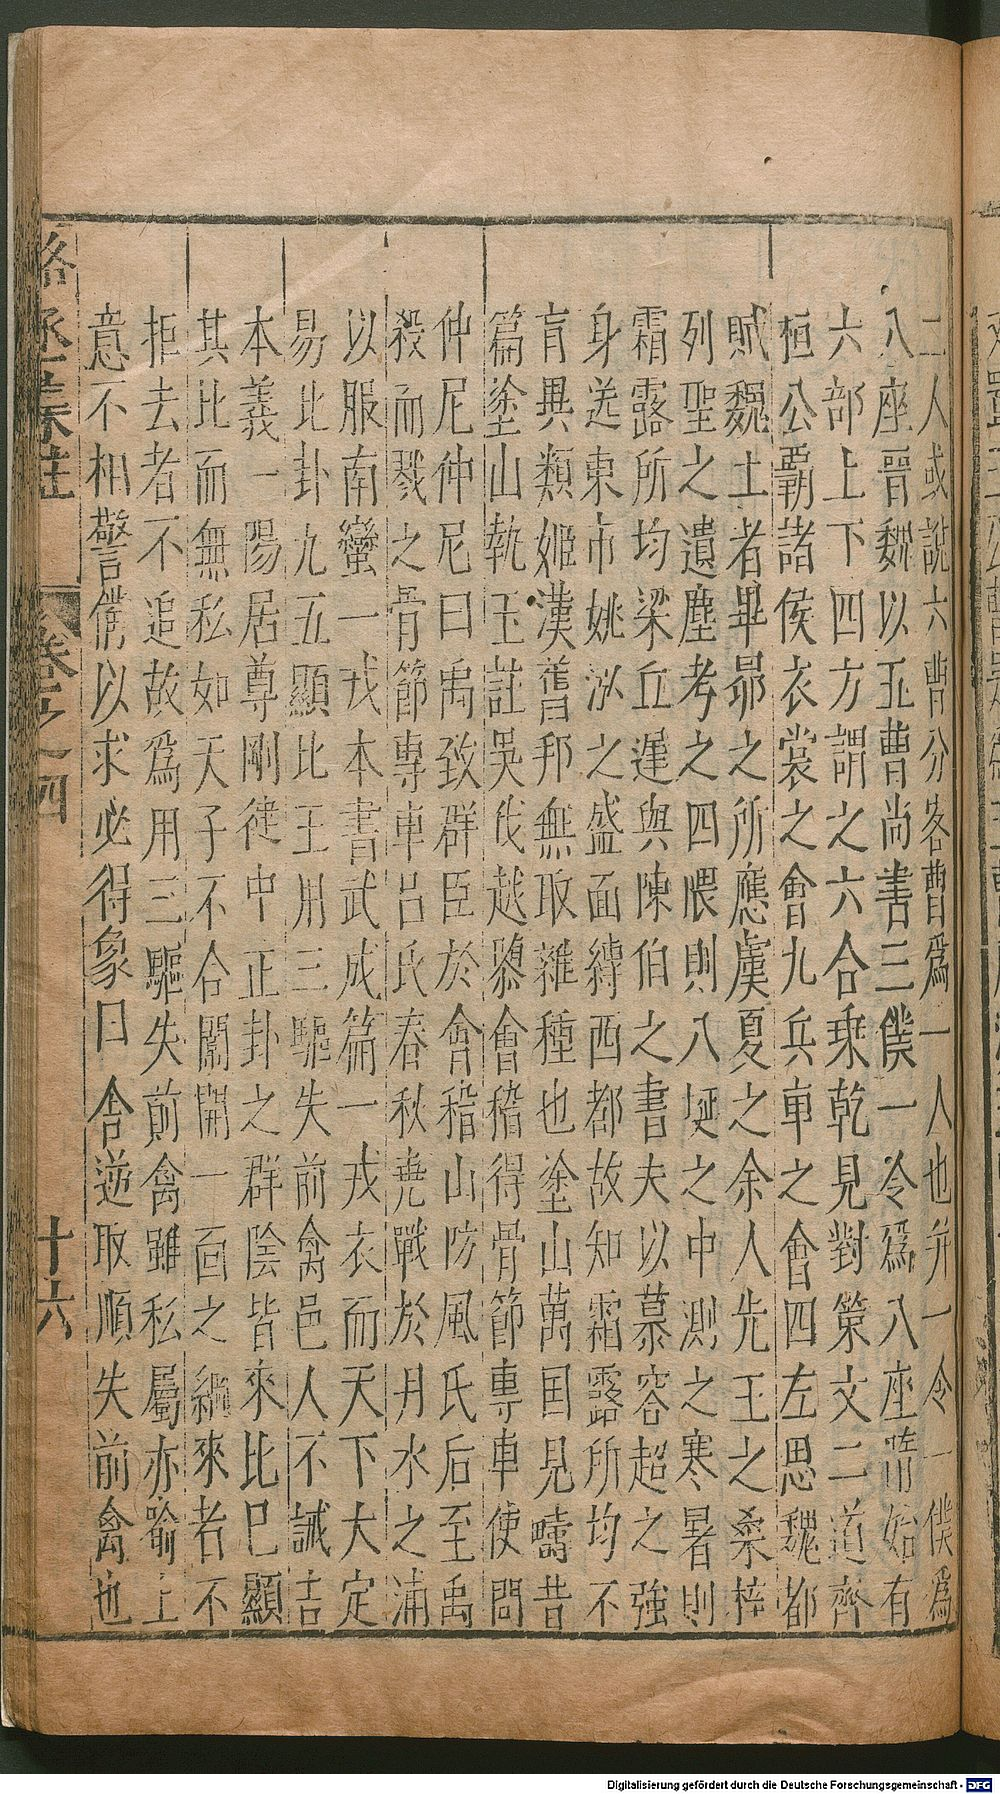 二人或說六曹分客曹爲一人也并一令一僕爲
八座晉魏以五曹尚書二僕一令爲八座隋始有
六部上下四方謂之六合乘乾見對策文二道齊
桓公覇諸侯衣裳之會九兵車之會四左思魏都
賦魏土者畢昴之所應虞夏之余人先王之桑梓
列聖之遺塵考之四隈則八埏之中測之寒暑則
霜露所均梁丘遲與陳伯之書夫以慕容超之強
身送東市姚泓之盛面縛西都故知霜露所均不
育異類姬漢舊邦無取雜種也塗山萬国見疇昔
篇塗山執玉註吳伐越隳會稽得骨節專車使問
仲尼仲尼曰禹致群臣於會稽山防風氏后至禹
殺而戮之骨節專車呂氏春秋堯戰於丹水之浦
以服南蠻一戎本書武成篇一戎衣而天下大定
易比卦九五顯比王用三驅失前禽邑人不誡吉
本義一陽居尊剛徤中正卦之群陰皆來比巳顯
其比而無私如天子不合圍開一面之網來者不
拒去者不追故爲用三驅失前禽雖私屬亦喻上
意不相警僃以求必得象曰舎逆取順失前禽也
卷之四
十六
Digitalisierung gefördert durch die Deutsche Forschungsgemeinschaft - DFG